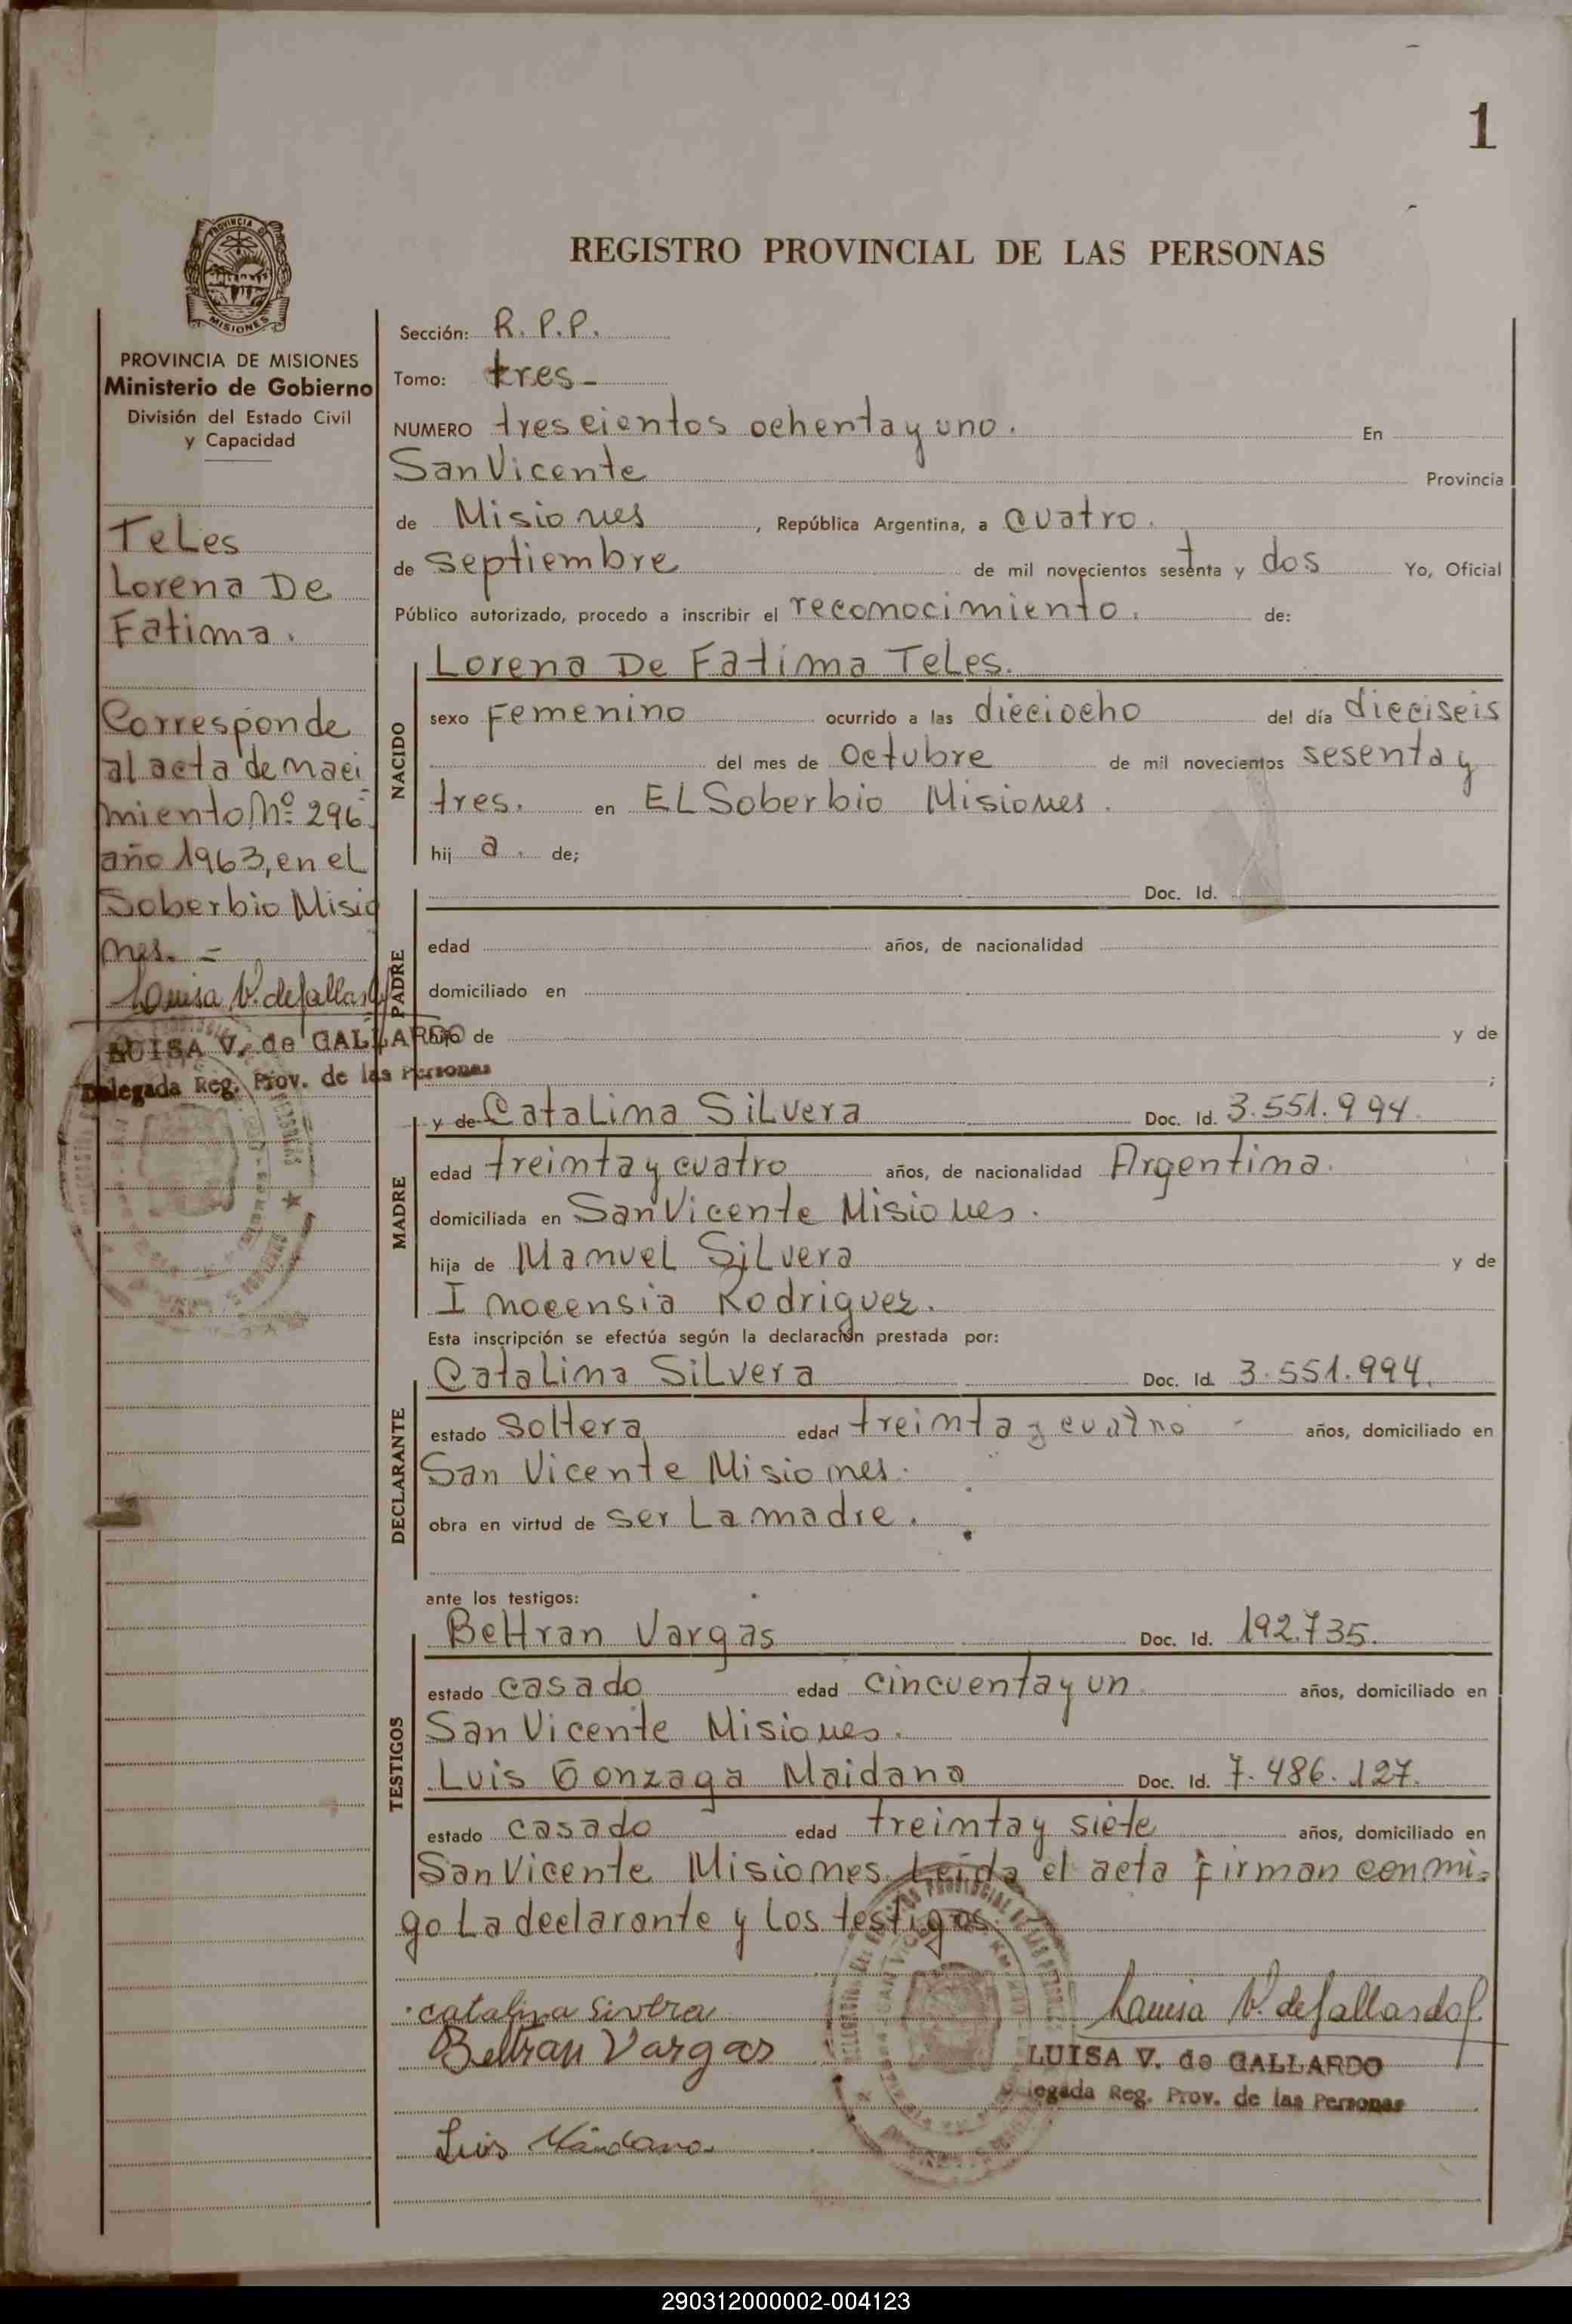 1
PROVINCIA DE
MISIONES
REGISTRO PROVINCIAL DE LAS PERSONAS
PROVINCIA DE MISIONES
Ministerio de Gobierno
División del Estado Civil
y Capacidad
Teles
Lorena De
Fatima.
Corresponde
al acta de naci
miento Nº 296
año 1963, en el
Soberbio Misio
nes. =
Luisa V. de Gallardo
LUISA V. de GALLARDO
Delegada Reg. Prov. de las Personas
Sección: R. P. P.
Tomo: tres -
NUMERO trescientos ochenta y uno. En
San Vicente Provincia
de Misiones, República Argentina, a cuatro.
de septiembre de mil novecientos setenta y dos Yo, Oficial
Público autorizado, procedo a inscribir el reconocimiento. de:
NACIDO
Lorena De Fatima Teles.
sexo Femenino ocurrido a las dieciocho del día dieciseis
del mes de Octubre de mil novecientos sesenta y
tres. en EL Soberbio Misiones.
hij a. de;
PADRE
Doc. Id.
edad años, de nacionalidad
domiciliado en
hijo de y de
;
MADRE
y de Catalina Silvera Doc. Id. 3.551.994
edad treinta y cuatro años, de nacionalidad Argentina.
domiciliada en San Vicente Misiones.
hija de Manuel Silvera y de
Inocensia Rodriguez.
Esta inscripción se efectúa según la declaración prestada por:
DECLARANTE
Catalina Silvera Doc. Id. 3.551.994.
estado soltera edad treinta y cuatro - años, domiciliado en
San Vicente Misiones.
obra en virtud de ser La madre.
ante los testigos:
TESTIGOS
Beltran Vargas Doc. Id. 192.735.
estado casado edad cincuenta y un años, domiciliado en
San Vicente Misiones.
Luis Gonzaga Maidana Doc. Id. 7.486.127.
estado casado edad treinta y siete años, domiciliado en
San Vicente Misiones. Leida el acta firman conmi=
go La declarante y Los testigos.
catalina Sivera
Beltran Vargas
Luisa V. de Gallardo
LUISA V. de GALLARDO
Delegada Reg. Prov. de las Personas
Luis Maidana
290312000002-004123